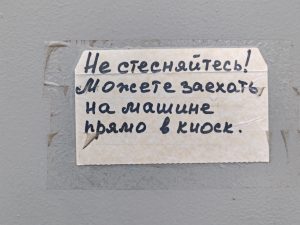 Не стесняйтесь!
Можете заехать
на машине
прямо в киоск.